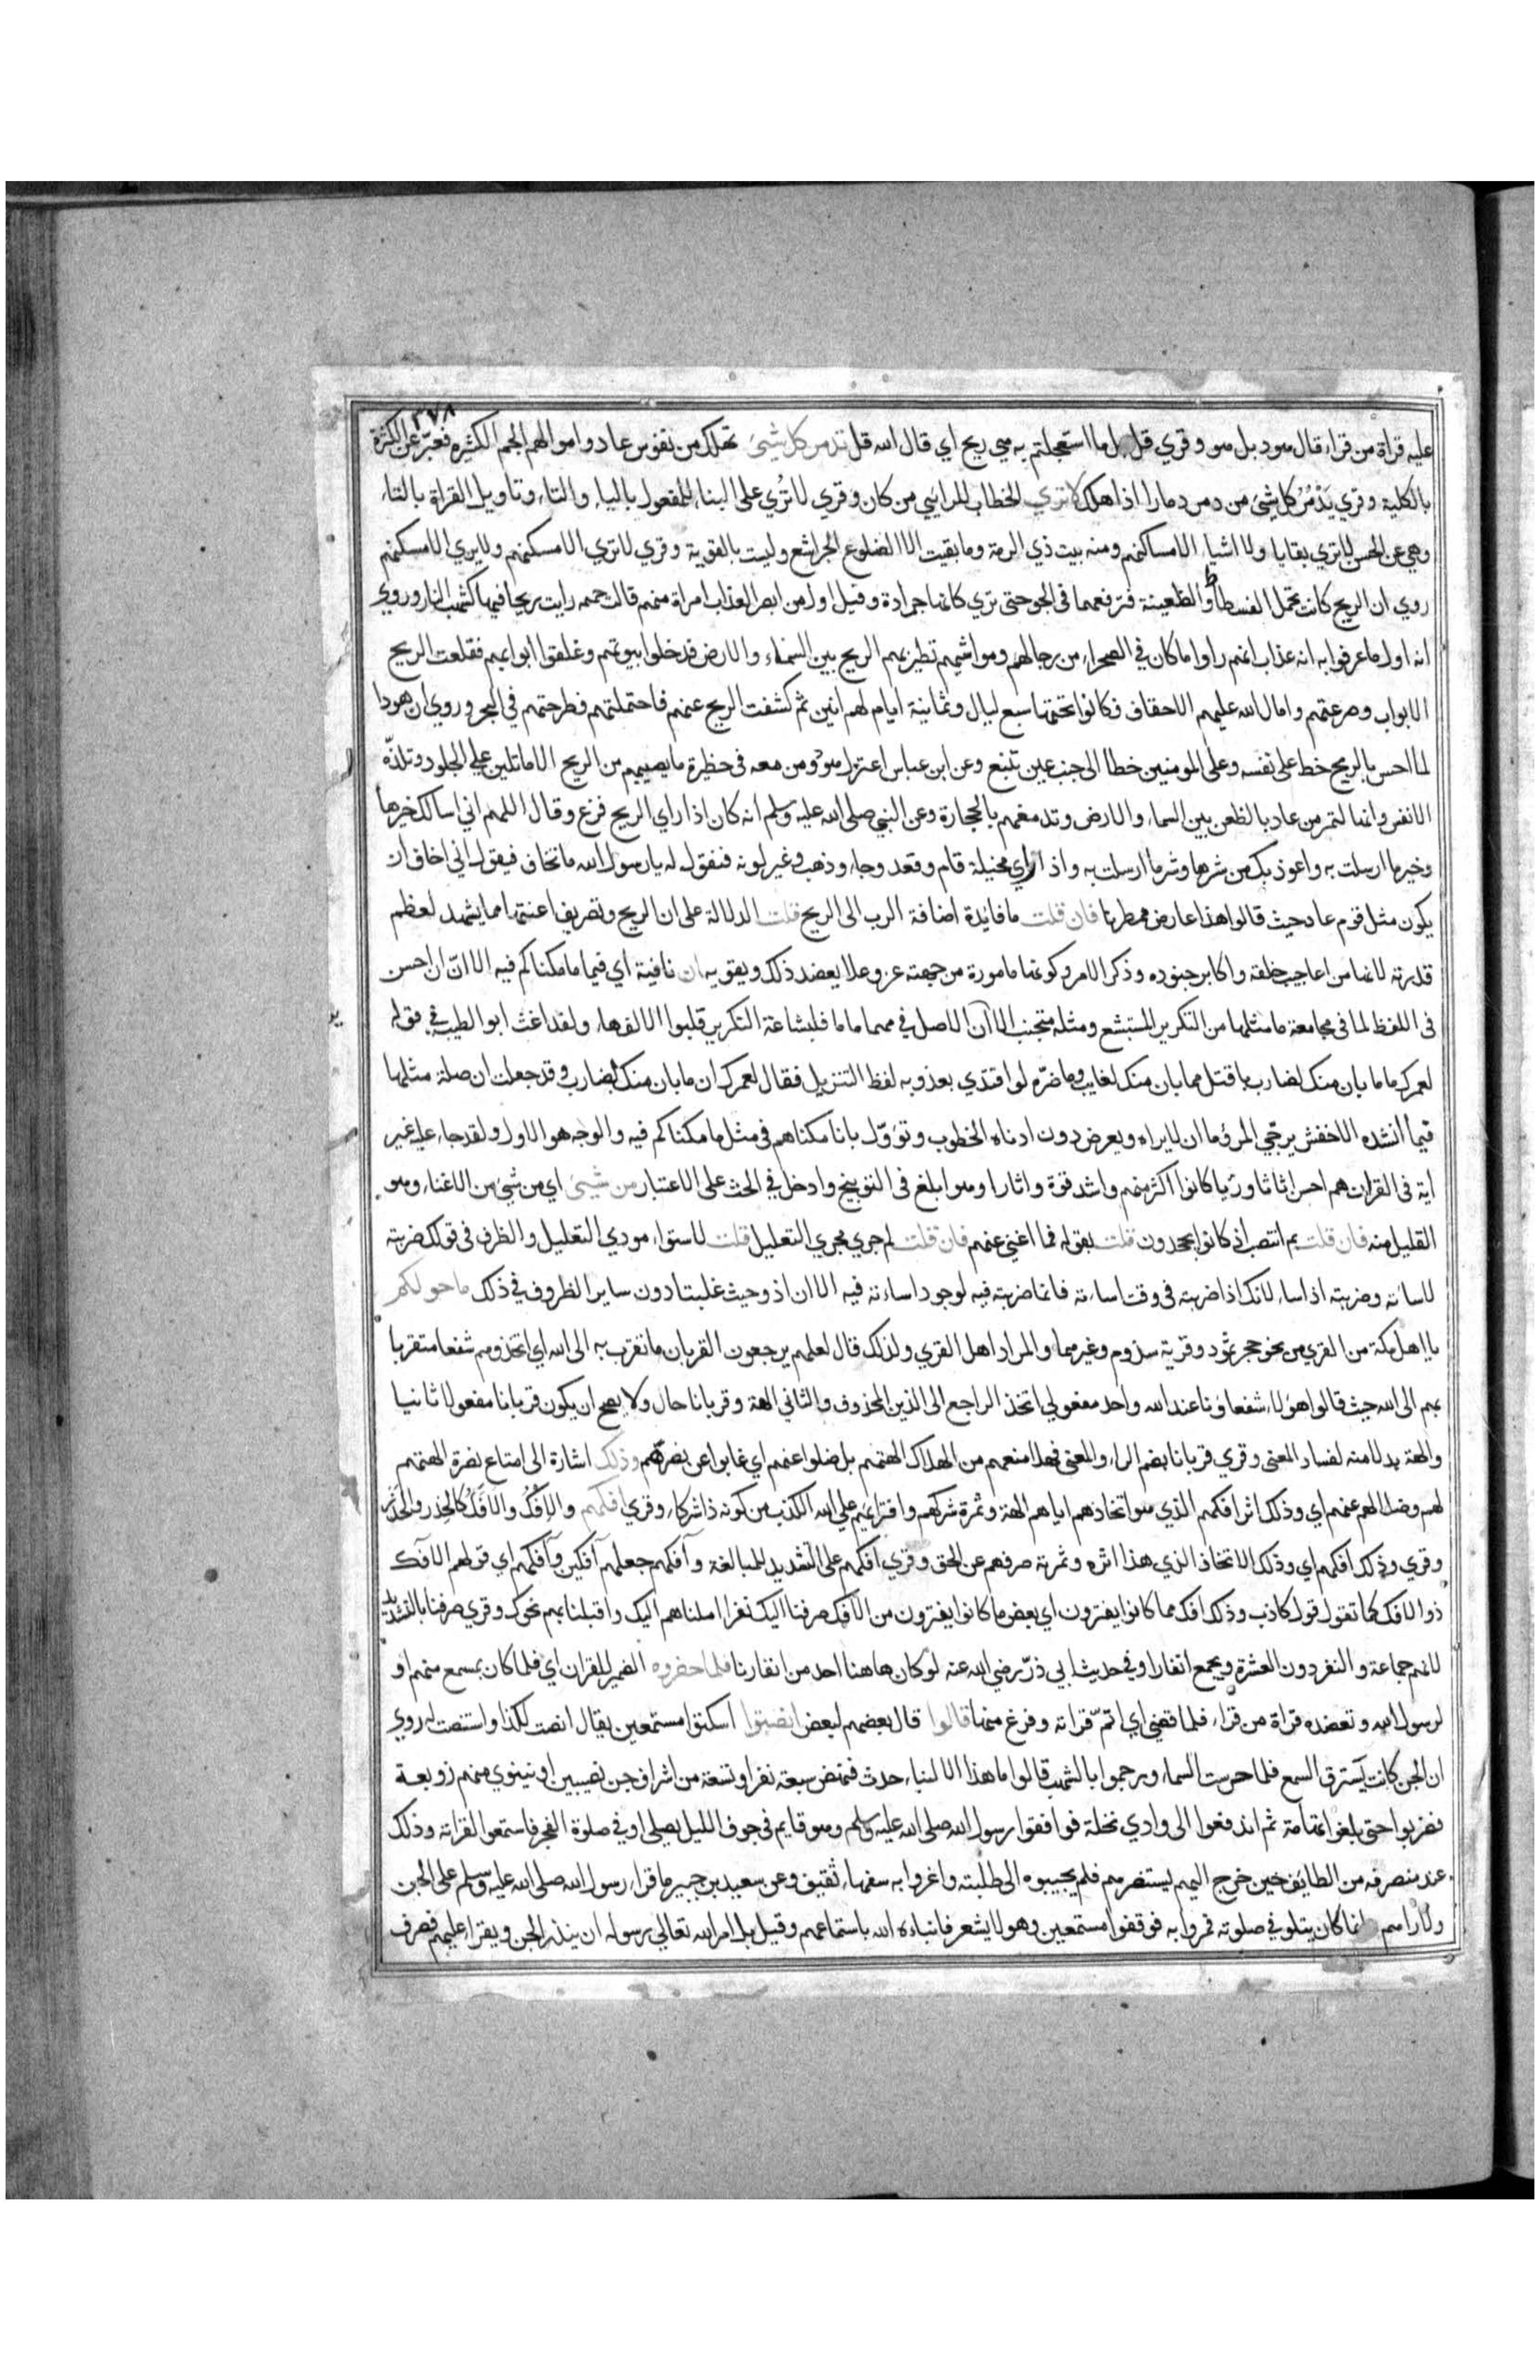 ٣٧٨
عليه قراة من قراء قال هود بل هو وقري قل بل ما استعجلتم به هي ريح اي قال الله قل تدمر كل شيئ تهلك من نفوس عاد واموالهم الجم الكثيره فعبّر عن الكثرة
بالكلية وقري يَدْمُرُ كل شيئ من دمر دمارا اذا هلك لا تري الخطاب للرايي من كان وقري لا تُري على البناء للمفعول بالياء والتاء وتاويل القراة بالتاء
وهي عن الحسن لا تري بقايا ولا اشيا الا مساكنهم ومنه بيت ذي الرمة وما بقيت الا الضلوع الجراشع وليست بالقوية وقري لا تري الا مسكنهم ولا يري الا مسكنهم
روي ان الريح كانت تحمل الفسطاط والظعينة فترفعها في الجو حتى تري كانها جرادة وقيل اول من ابصر العذاب امراة منهم قالت رايت ريحا فيها كشهب النار وروي
انه اول ما عرفوا به انه عذاب انهم راوا ما كان في الصحراء من رحالهم ومواشيهم تطير بهم الريح بين السماء والارض فدخلوا بيوتهم وغلقوا ابوابهم فقلعت الريح
الابواب وصرعتهم وامال الله عليهم الاحقاف فكانوا تحتها سبع ليال وثمانية ايام لهم انين ثم كشفت الريح عنهم فاحتملتهم فطرحتهم في البحر وروي ان هودا
لما احس بالريح خط على نفسه وعلى المومنين خطا الى جنب عين تنبع وعن ابن عباس اعتزل هود ومن معه في حظيرة ما يصيبهم من الريح الا ما تلين علي الجلود وتلذّه
الانفس وانها لتمر من عاد بالظعن بين السماء والارض وتدمغهم بالحجارة وعن النبي صلى الله عليه وسلم انه كان اذا راي الريح فزع وقال اللهم اني اسالك خيرها
وخير ما ارسلت به واعوذ بك من شرها وشر ما ارسلت به واذا راي مخيلة قام وقعد وجاء وذهب وغير لونه فنقول له يا رسول الله ما تخاف فيقول اني اخاف ان
يكون مثل قوم عاد حيث قالوا هذا عارض ممطرنا فان قلت ما فايدة اضافة الرب الى الريح قلت الدلالة على ان الريح وتصريف اعنتها مما يشهد لعظم
قدرته لانها من اعاجيب خلقه واكابر جنوده وذكر الامر وكونها مامورة من جهته عز وعلا يعضد ذلك ويقويه ان نافية اي فيما ما مكناكم فيه الا انّ ان احسن
في اللفظ لما في مجامعة ما مثلها من التكرير المستبشع ومثله متجنب الا ان الاصل في مهما ماما فلبشاعة التكرير قلبوا الالف هاء ولقد اغث ابو الطيب في قوله
لعمرك ما ما بان منك لضارب باقتل مما بان منك لغايب وما ضرّه لو اقتدي بعذوبه لفظ التنزيل فقال لعمرك ان ما بان منك لضارب وقد جعلت ان صلة مثلها
فيما انشده الاخفش يرجّي المرؤ ما ان لا يراه ويعرض دون ادناه الخطوب وتؤوّل بانا مكناهم في مثل ما مكناكم فيه والوجه هو الاول ولقد جاء عليه غير
اية في القران هم احسن اثاثا ورئيا كانوا اكثر منهم واشد قوة واثارا وهو ابلغ في التوبيخ وادخل في الحث على الاعتبار من شيئ اي من شيئ من الاغناء وهو
القليل منه فان قلت بم انتصب اذ كانوا يجحدون قلت بقوله فما اغني عنهم فان قلت لم جري مجري التعليل قلت لاستواء مودي التعليل والظرف في قولك ضربته
لاساته وضربته اذا ساء لانك اذا ضربته في وقت اساءته فانما ضربته فيه لوجود اساءته فيه الا ان اذ وحيث غلبتا دون ساير الظروف في ذلك ما حولكم
يا اهل مكة من القري من نحو حجر ثمود وقرية سذوم وغيرهما والمراد اهل القري ولذلك قال لعلهم يرجعون القربان ما تقرب به الى الله اي اتخذوهم شفعا متقربا
بهم الى الله حيث قالوا هؤلاء شفعاؤنا عند الله واحد مفعولي اتخذ الراجع الى الذين المحذوف والثاني الهة وقربانا حال ولا يصح ان يكون قربانا مفعولا ثانيا
والهة بدلا منه لفساد المعنى وقري قربانا بضم الراء والمعنى فهلا منعهم من الهلاك الهتهم بل ضلوا عنهم اي غابوا عن نصرتهم وذلك اشارة الى امتناع نصرة الهتهم
لهم وضلالهم عنهم اي وذلك اثر افكهم الذي هو اتخاذهم اياهم الهة وثمرة شركهم وافترايهم علي الله الكذب من كونه ذا شركاء وقري افكهم والاِفْكُ والاَفَكُ كالحِذر والحَذَر
وقري وذلك افكهم اي وذلك الاتخاذ الذي هذا اثره وثمرته صرفهم عن الحق وقري افّكهم على التشديد للمبالغة وآفكهم جعلهم آفكين وآفكهم اي قولهم الآفك
ذو الافك كما تقول قول كاذب وذلك افك مما كانوا يفترون اي بعض ما كانوا يفترون من الافك صرفنا اليك نفرا املناهم اليك واقبلنا بهم نحوك وقري صرفنا بالتشديد
لانهم جماعة والنفر دون العشرة ويجمع انفارا وفي حديث ابي ذرّ رضي الله عنه لو كان هاهنا احد من انفارنا فلما حضروه الضمير للقران اي فلما كان بمسمع منهم او
لرسول الله وتعضده قراة من قراء فلما قضي اي اتمّ قراته وفرغ منها قالوا قال بعضهم لبعض انصتوا اسكتوا مستمعين يقال انصت لكذا واستنصت له روي
ان الجن كانت تسترق السمع فلما حرست السماء ورجموا بالشهب قالوا ما هذا الا لنباء حدث فنهض سبعة نفر او تسعة من اشراف جن نصيبين او نينوي منهم زوبعة
فضربوا حتى بلغوا تهامة ثم اندفعوا الى وادي نخلة فوافقوا رسول الله صلى الله عليه وسلم وهو قايم في جوف الليل يصلي او في صلوة الفجر فاستمعوا لقراته وذلك
عند منصرفه من الطايف حين خرج اليهم يستنصرهم فلم يجيبوه الى طلبته واغروا به سفهاء ثقيف وعن سعيد بن جبير ما قراء رسول الله صلى الله عليه وسلم على الجن
ولا راهم وانما كان يتلو في صلوته فمروا به فوقفوا مستمعين وهو لا يشعر فانباءه الله باستماعهم وقيل بل امر الله تعالي رسوله ان ينذر الجن ويقراء عليهم فصرف